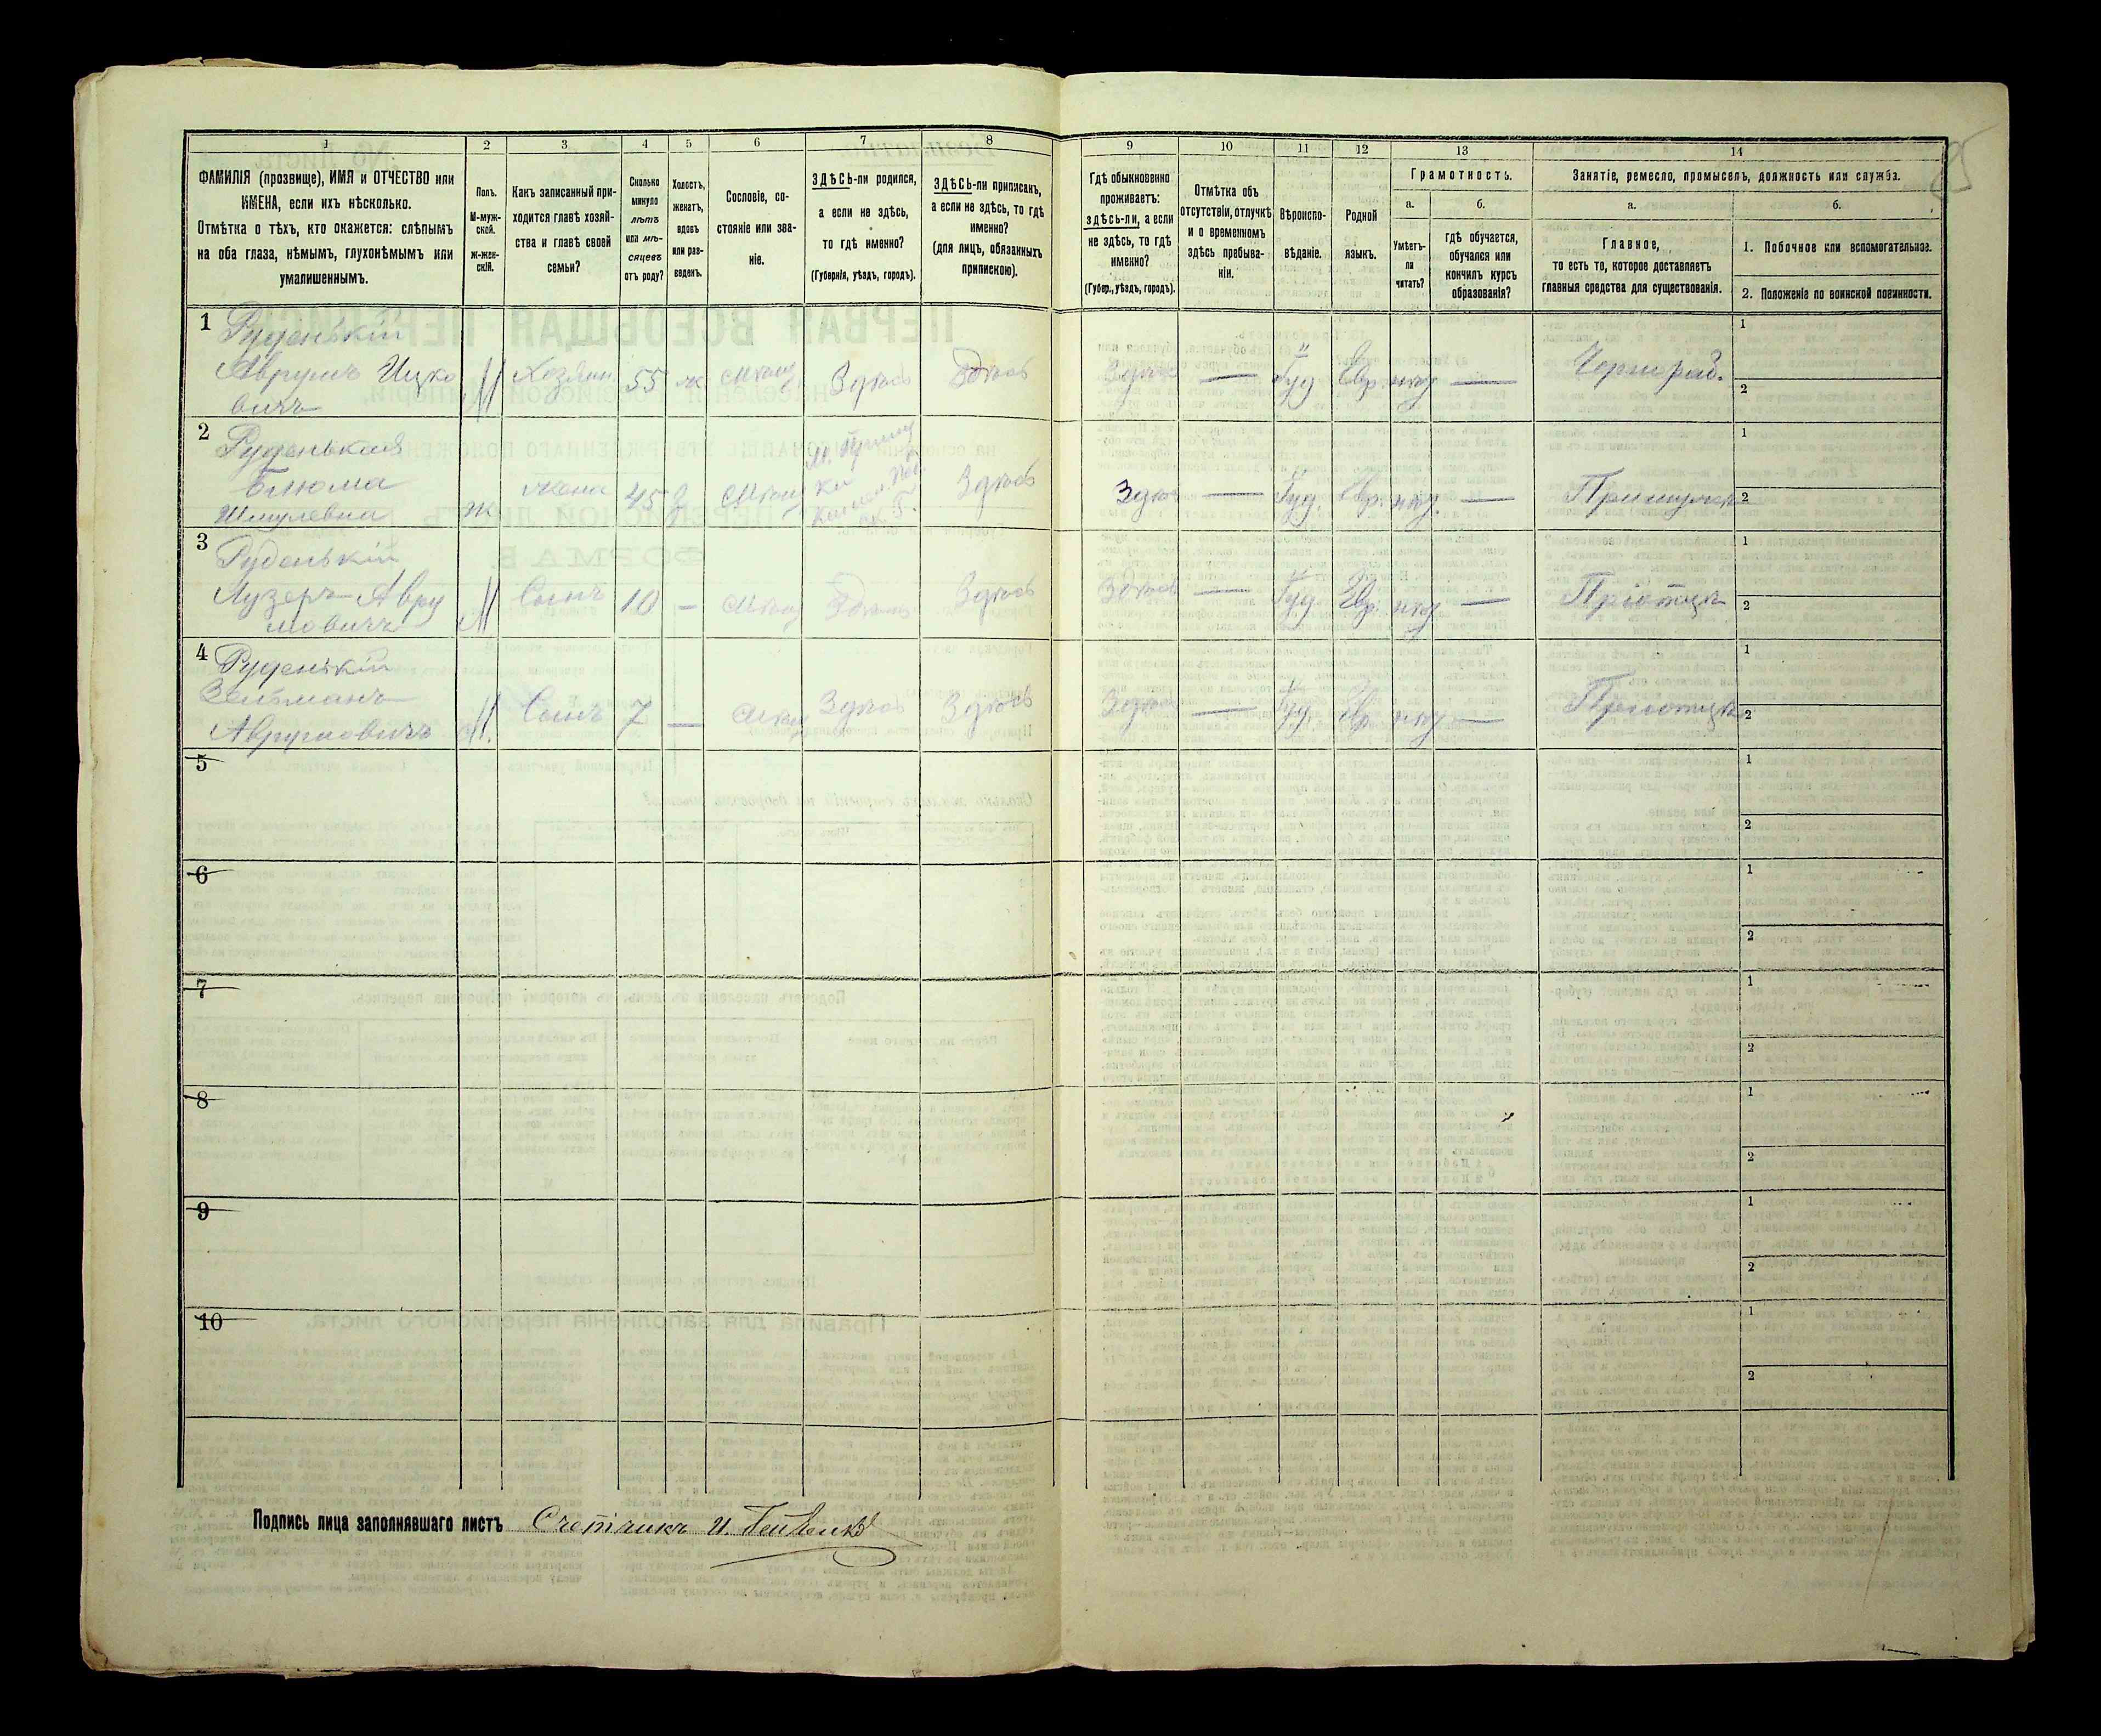 1
ФАМИЛІЯ (прозвище), ИМЯ и ОТЧЕСТВО или
ИМЕНА, если ихъ нѣсколько.
Отмѣтка о тѣхъ, кто окажется: слѣпымъ
на оба глаза, нѣмымъ, глухонѣмымъ или
умалишеннымъ.
2
Полъ.
М-муж-
ской.
Ж-жен-
скій.
3
Какъ записанный при-
ходится главѣ хозяй-
ства и главѣ своей
семьи?
4
Сколько
минуло
лѣтъ
или мѣ-
сяцевъ
отъ роду?
5
Холостъ,
женатъ,
вдовъ
или раз-
веденъ.
6
Сословіе, со-
стояніе или зва-
ніе.
7
ЗДѢСЬ-ли родился,
а если не здѣсь,
то гдѣ именно?
(Губернія, уѣздъ, городъ).
8
ЗДѢСЬ-ли приписанъ,
а если не здѣсь, то гдѣ
именно?
(для лицъ, обязанныхъ
припискою).
9
Гдѣ обыкновенно
проживаетъ:
здѣсь-ли, а если
не здѣсь, то гдѣ
именно?
(Губер., уѣздъ, городъ).
10
Отмѣтка объ
отсутствіи, отлучкѣ
и о временномъ
здѣсь пребыва-
ніи.
11
Вѣроиспо-
вѣданіе.
12
Родной
языкъ.
13
Грамотность.
а.
Умѣетъ-
ли
читать?
б.
гдѣ обучается,
обучался или
кончилъ курсъ
образованія?
14
Занятіе, ремесло, промыселъ, должность или служба.
а.
Главное,
то есть то, которое доставляетъ
главныя средства для существованія.
б.
1. Побочное или вспомогательное.
2. Положеніе по воинской повинности.
1 Руденькій
Аврумъ Ицко
вичъ
М Хозяин. 55 ж Мѣщ Здѣсь Здѣсь Здѣсь — Іуд Евр. нѣт — Чернораб.
1
2
2 Руденькая
Блюма
Шмулевна
ж жена 45 з Мѣщ
Здѣсь Здѣсь — Іуд. Евр. нѣт. —
1
2
3 Руденькій
Лузеръ Авру
мовичъ
М Сынъ 10 — Мѣщ Здѣсь Здѣсь Здѣсь — Іуд Евр. нѣт —
1
2
4 Руденькій
Зельманъ
Аврумовичъ
М. Сынъ 7 — Мѣщ Здѣсь Здѣсь Здѣсь — Іуд. Евр нѣт —
1
2
5
1
2
6
1
2
7
1
2
8
1
2
9
1
2
10
1
2
Подпись лица заполнявшаго листъ Счетчикъ И.